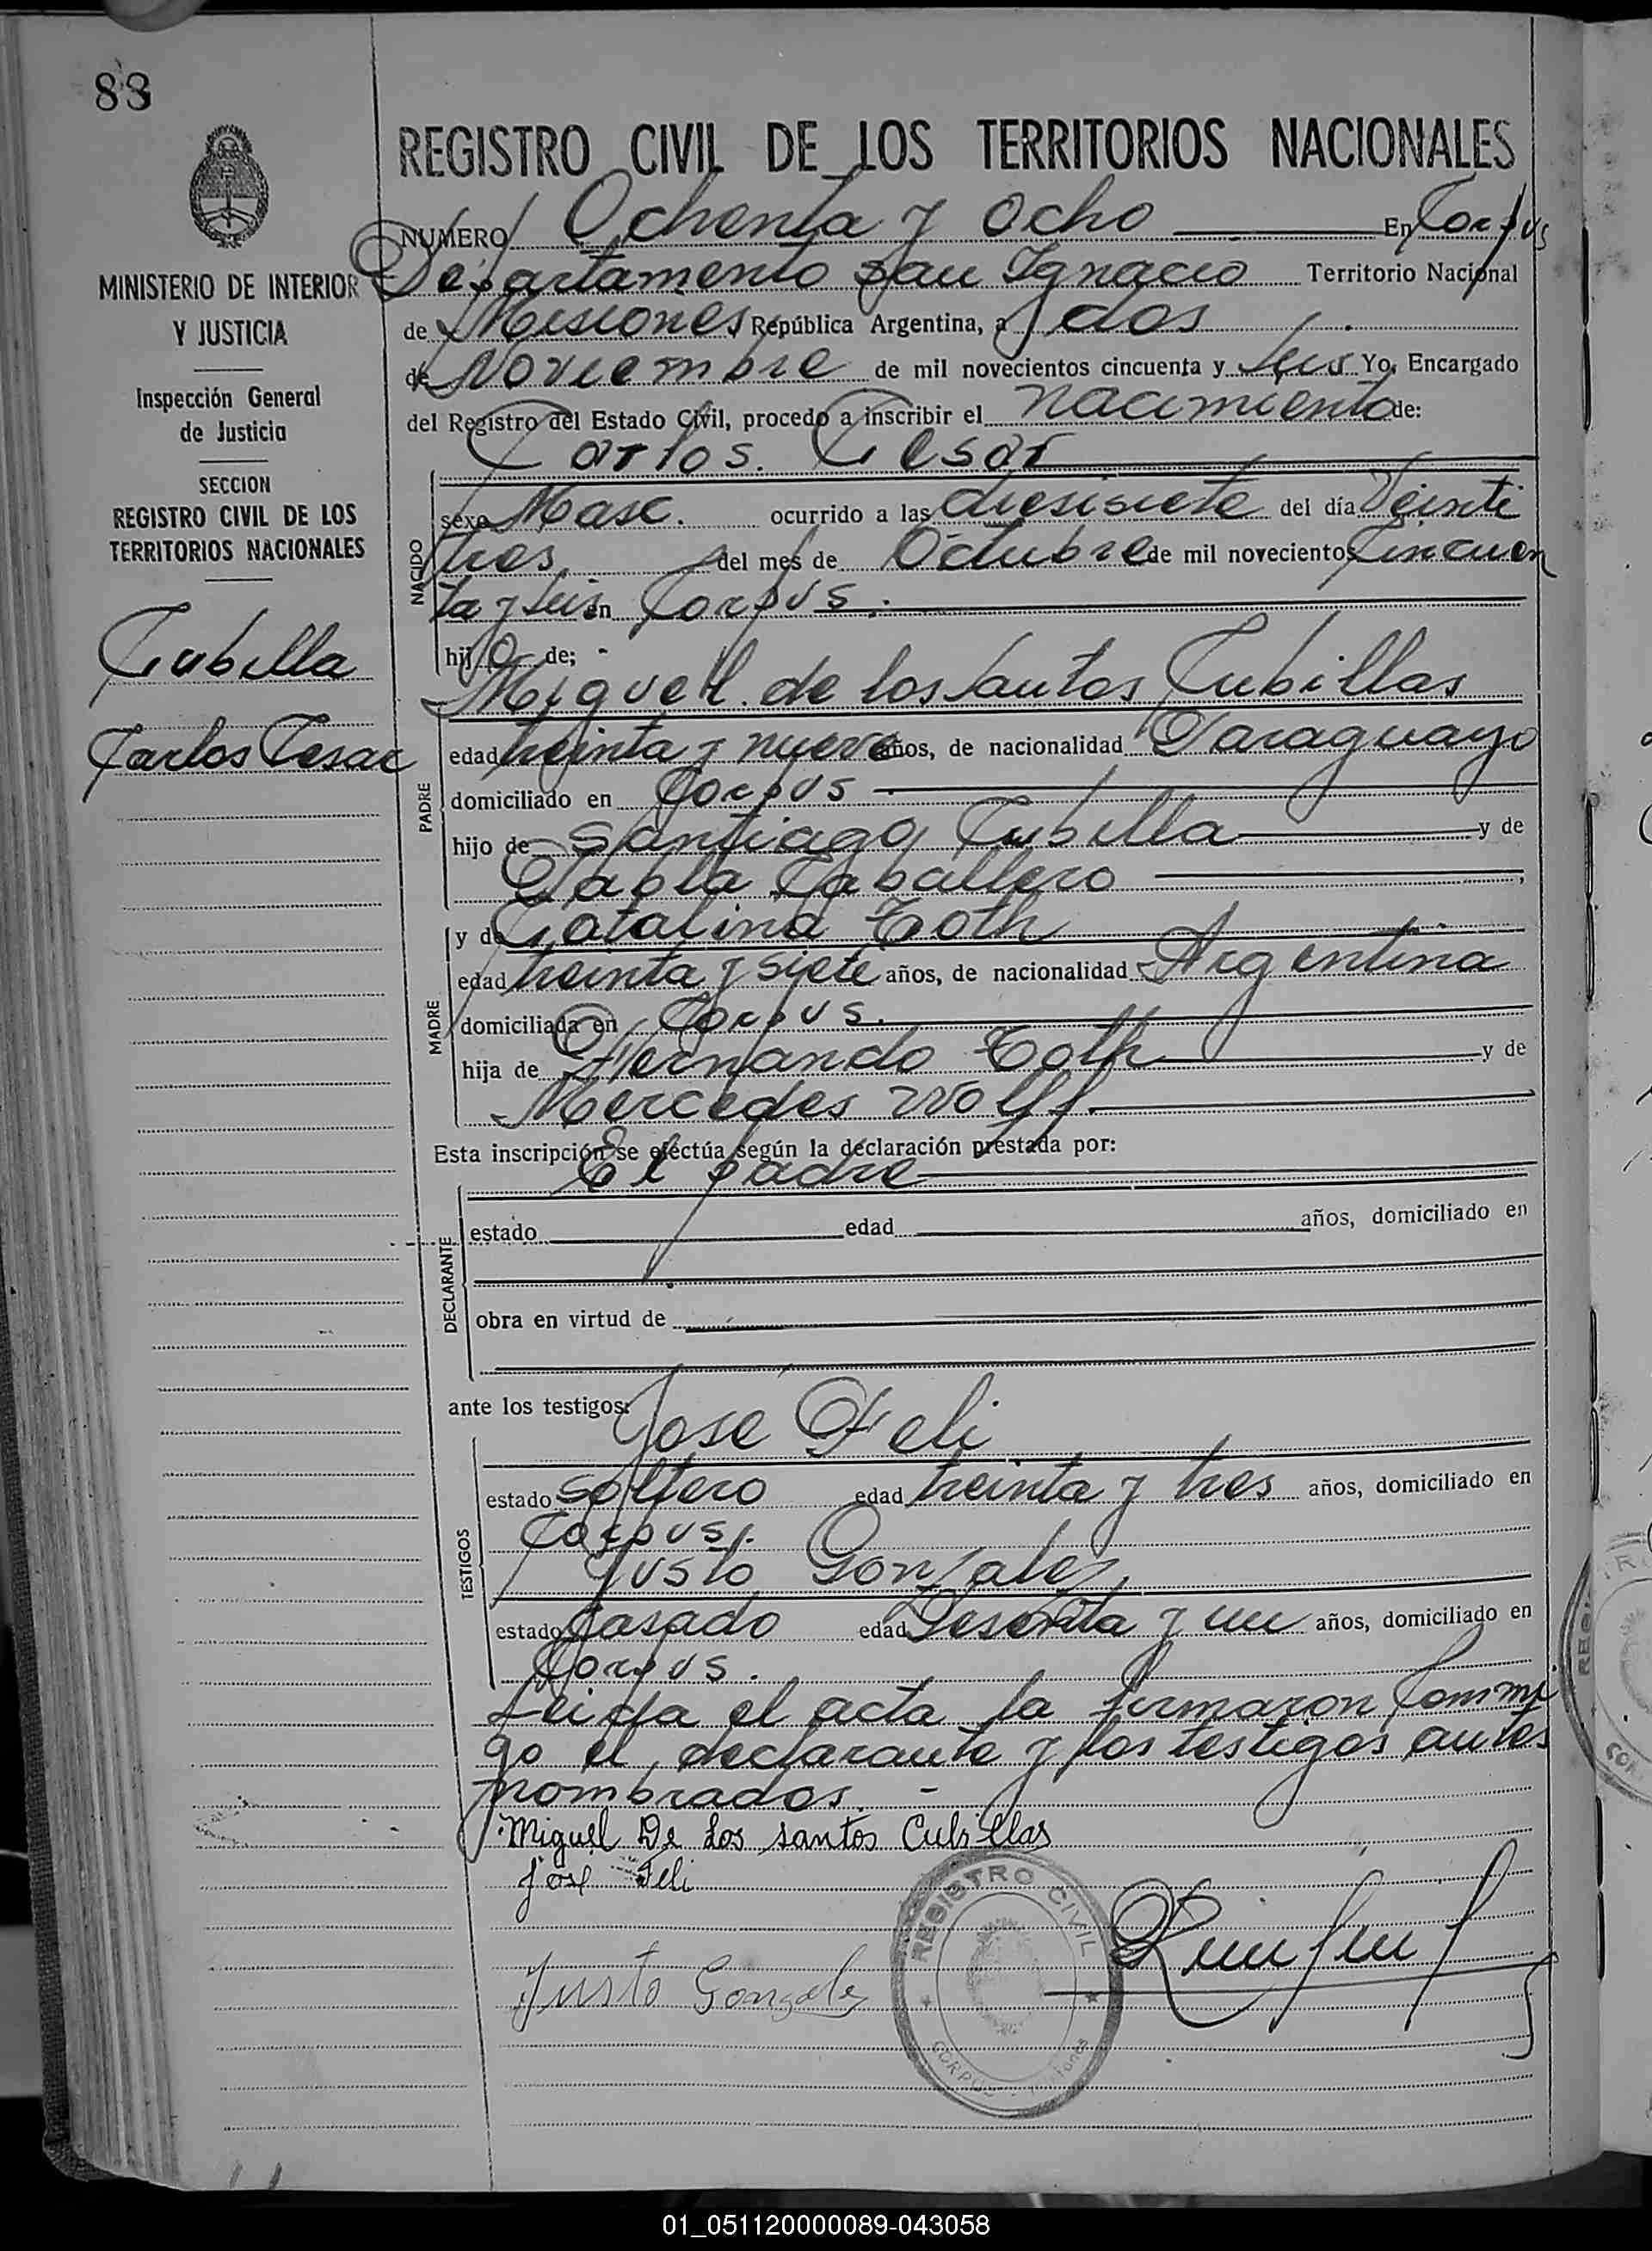 88
REGISTRO CIVIL DE LOS TERRITORIOS NACIONALES
NUMERO Ochenta y Ocho En Corpus
Departamento San Ignacio Territorio Nacional
de Misiones República Argentina, a dos
de Noviembre de mil novecientos cincuenta y seis Yo, Encargado
del Registro del Estado Civil, procedo a inscribir el nacimiento de:
Carlos. Cesar
MINISTERIO DE INTERIOR
Y JUSTICIA
Inspección General
de Justicia
SECCION
REGISTRO CIVIL DE LOS
TERRITORIOS NACIONALES
Cubilla
Carlos Cesar
NACIDO
sexo Masc. ocurrido a las diesisiete del día Veinti
tres del mes de Octubre de mil novecientos Cincuen
ta y seis en Corpus.
hijo de;
Miguel de los santos Cubillas
PADRE
edad treinta y nueve años, de nacionalidad Paraguayo
domiciliado en Corpus
hijo de Santiago Cubilla y de
Pabla Caballero
MADRE
y de Catalina Toth
edad treinta y siete años, de nacionalidad Argentina
domiciliada en Corpus.
hija de Fernando Toth y de
Mercedes Wolff.
Esta inscripción se efectúa según la declaración prestada por:
El padre
DECLARANTE
estado edad años, domiciliado en
obra en virtud de
ante los testigos:
José Feli
TESTIGOS
estado soltero edad treinta y tres años, domiciliado en
Corpus.
Justo Gonzalez
estado Casado edad Sesenta y un años, domiciliado en
Corpus.
Leida el acta la firmaron Commi
go el declarante y los testigos antes
nombrados. -
Miguel De Los santos Cubillas
José Feli
Justo Gonzalez
REGISTRO CIVIL
CORPUS - Misiones
01_051120000089-043058